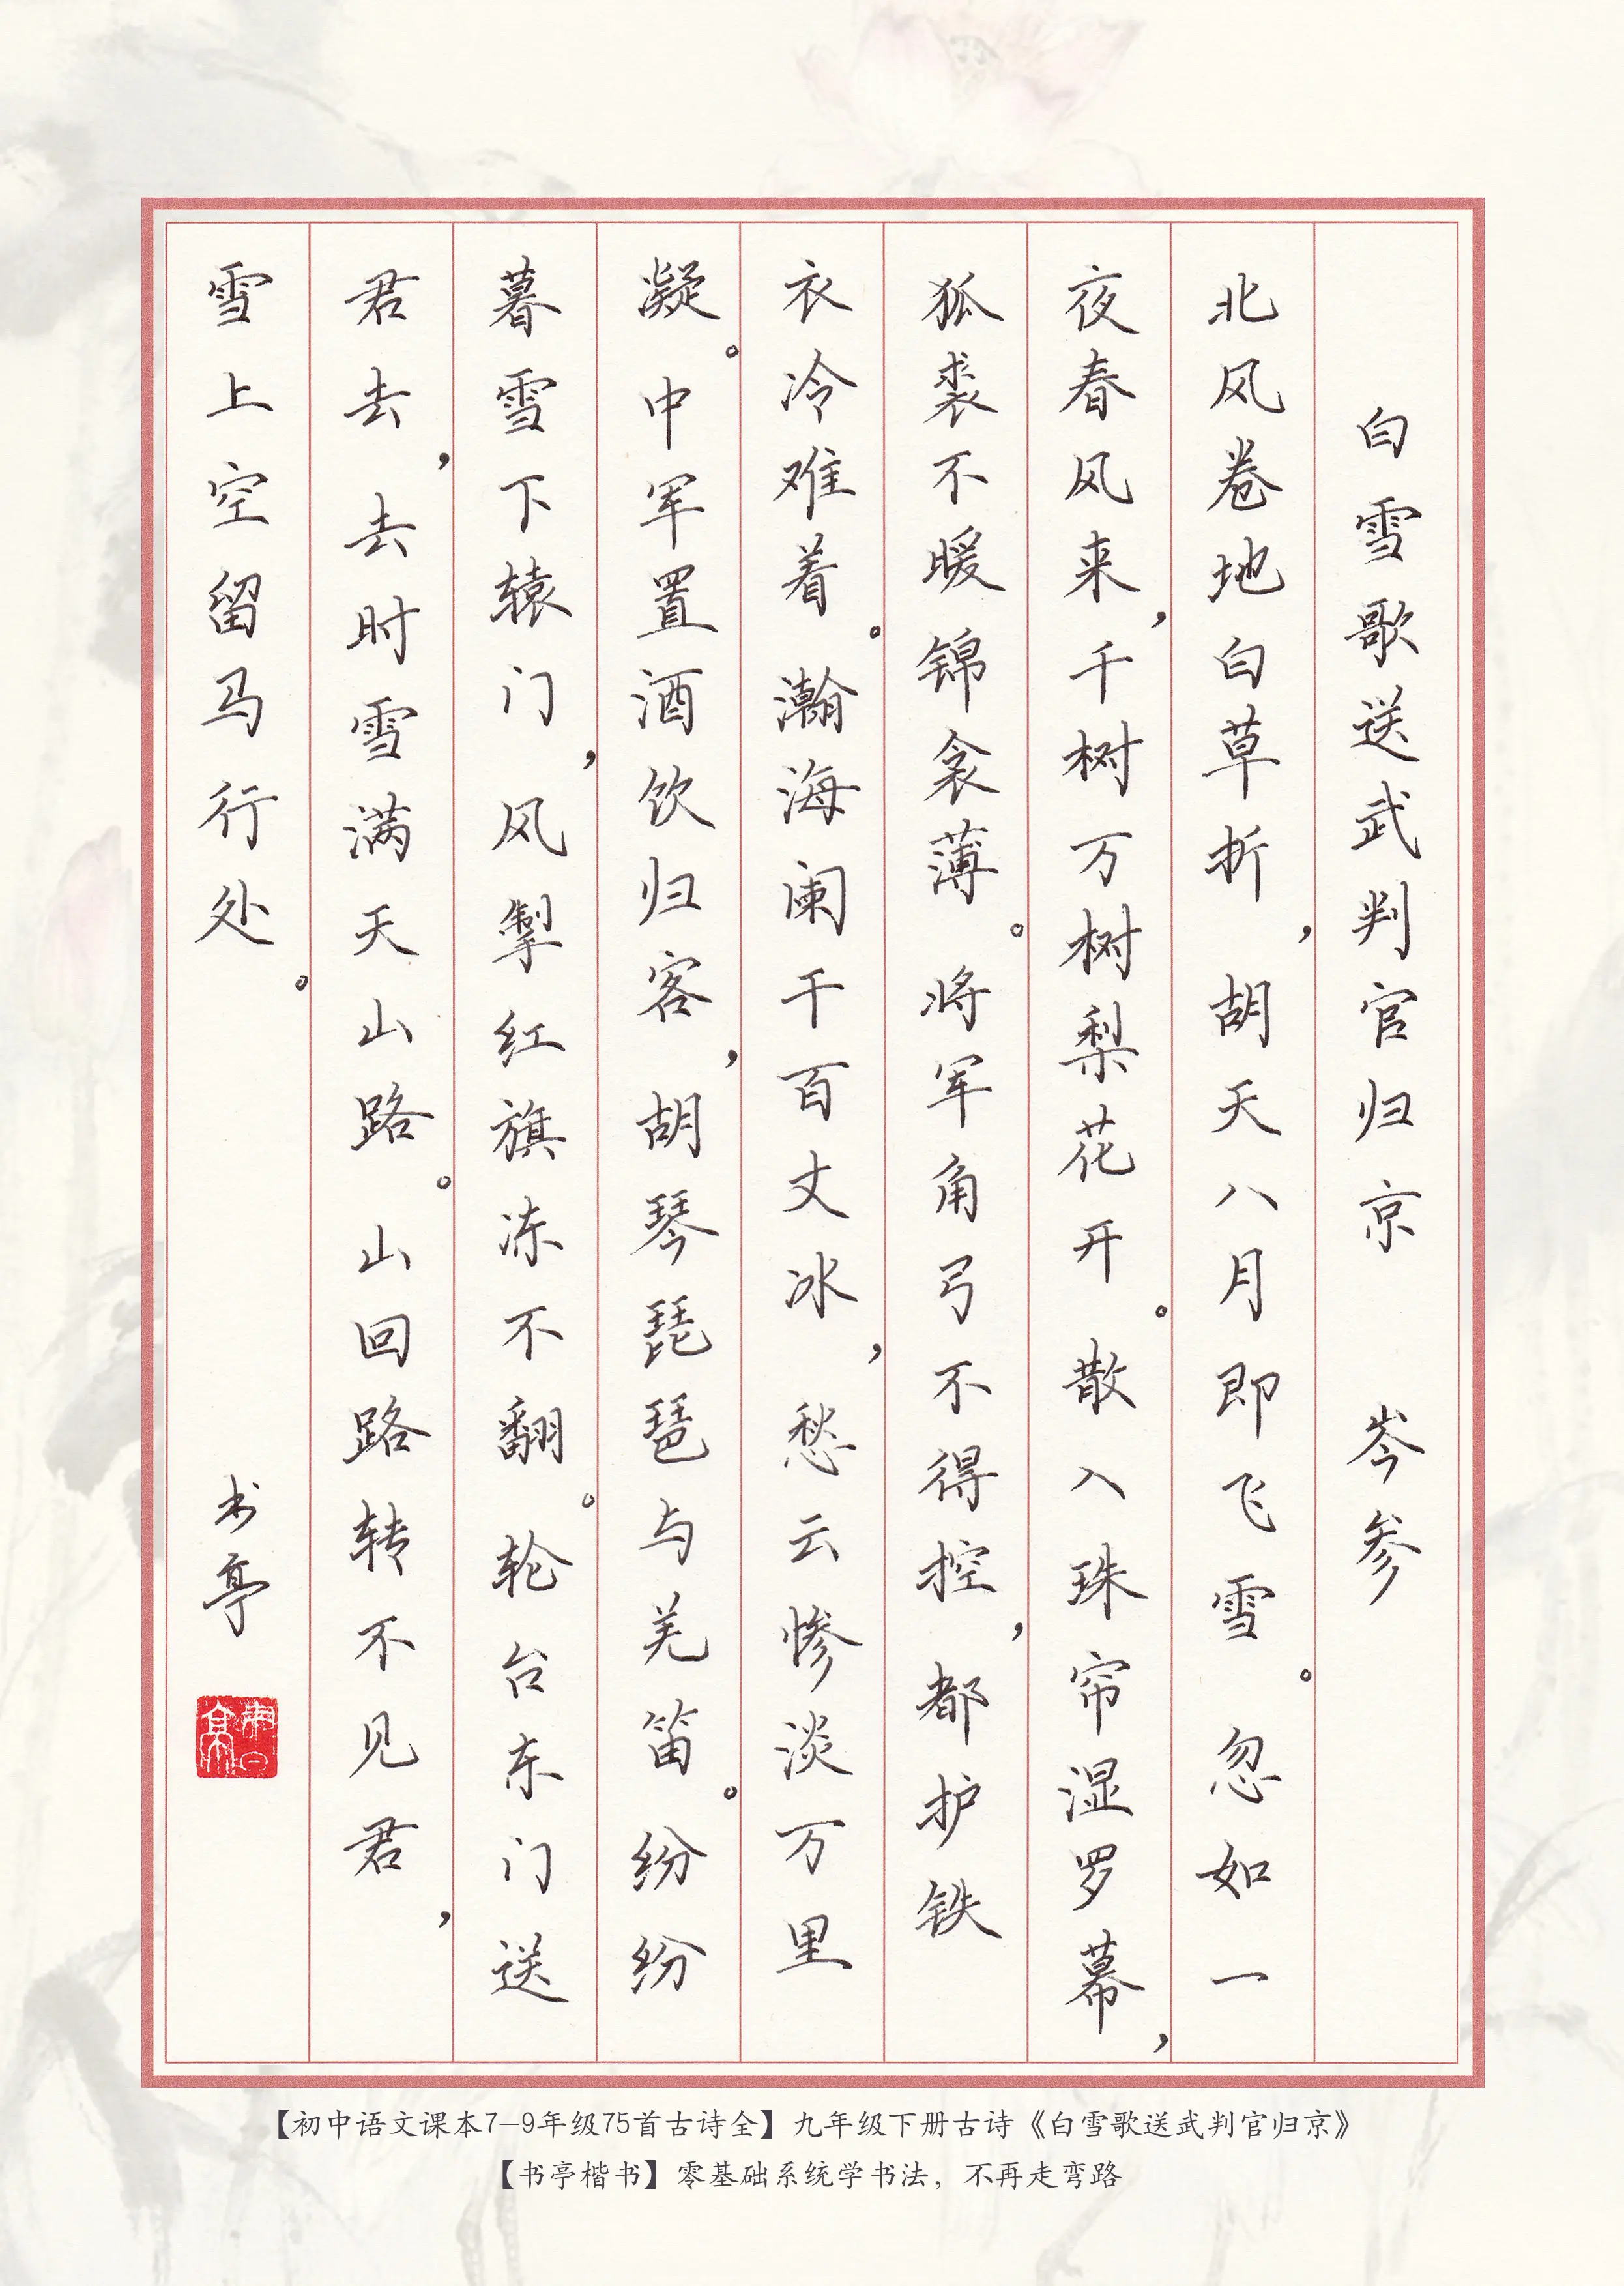 白雪歌送武判官归京 岑参
北风卷地白草折，胡天八月即飞雪。忽如一
夜春风来，千树万树梨花开。散入珠帘湿罗幕，
狐裘不暖锦衾薄。将军角弓不得控，都护铁
衣冷难着。瀚海阑干百丈冰，愁云惨淡万里
凝。中军置酒饮归客，胡琴琵琶与羌笛。纷纷
暮雪下辕门，风掣红旗冻不翻。轮台东门送
君去，去时雪满天山路。山回路转不见君，
雪上空留马行处。 书亭
【初中语文课本7-9年级75首古诗全】九年级下册古诗《白雪歌送武判官归京》
【书亭楷书】零基础系统学书法，不再走弯路